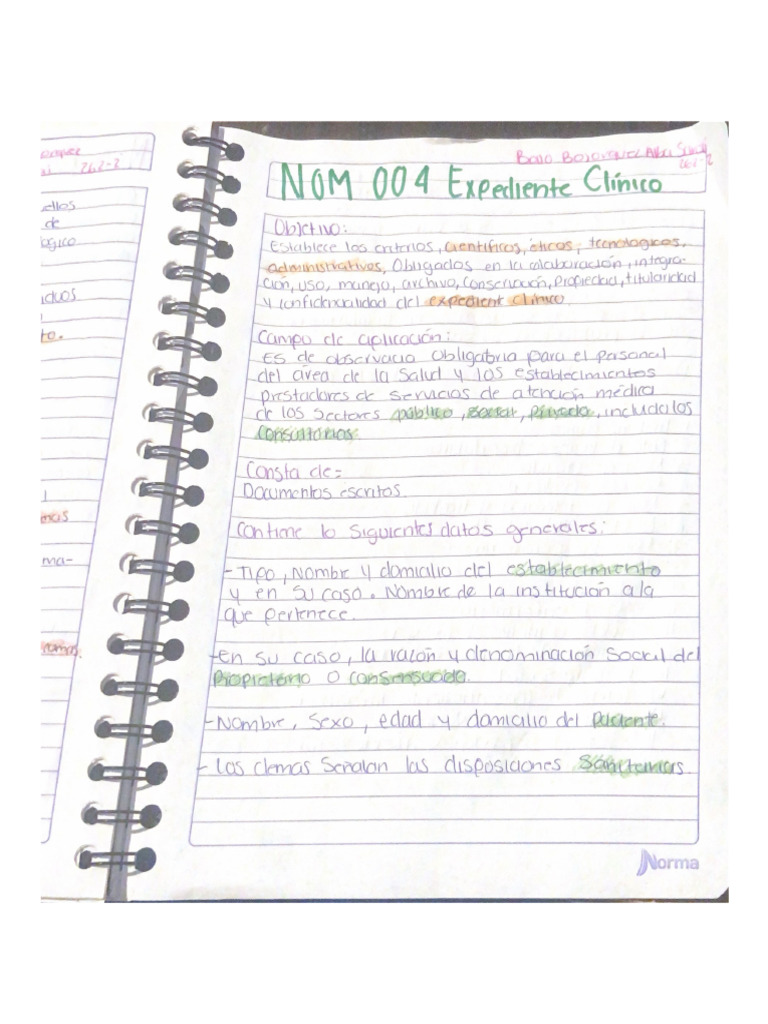 262-2
ellos
de
lógico
duos
to.
mas
ma-
NOM 004 Expediente Clínico
Objetivo:
Establece los criterios, científicos, éticos, tecnologicos,
administrativos, Obligados en la elaboración, integra-
ción, uso, manejo, archivo, conservación, propiedad, titularidad
y confidencialidad del expedient clínico
Campo de aplicación:
Es de observacia Obligatoria para el personal
del área de la Salud y los establecimientos
prestadores de servicios de atención médica
de los sectores público, social, privado, incluidalos
consultorios
Consta de:
Documentos escritos.
Contiene lo siguientes datos generales:
-Tipo, Nombre y domicilio del establecimiento
y en su caso. Nombre de la institución a la
que pertenece.
-en su caso, la razón y denominación Social del
Propietario o
-Nombre, Sexo, edad y domicilio del paciente.
- Los demas Señalan las disposiciones sanitarias.
Norma